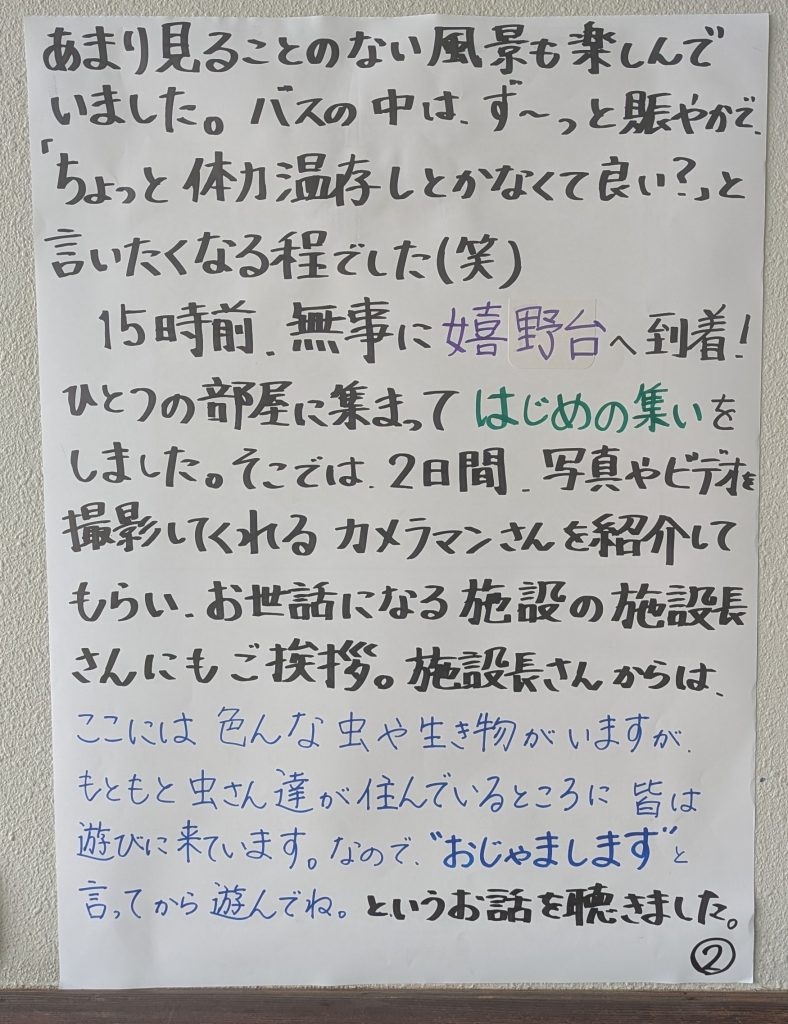 あまり見ることのない風景も楽しんで
いました。バスの中は、ず〜っと賑やかで、
「ちょっと体力温存しとかなくて良い？」と
言いたくなる程でした(笑)
15時前、無事に嬉野台へ到着！
ひとつの部屋に集まってはじめの集いを
しました。そこでは、2日間、写真やビデオを
撮影してくれるカメラマンさんを紹介して
もらい、お世話になる施設の施設長
さんにもご挨拶。施設長さんからは、
ここには色んな虫や生き物がいますが、
もともと虫さん達が住んでいるところに皆は
遊びに来ています。なので、"おじゃまします"と
言ってから遊んでね。というお話を聴きました。
②